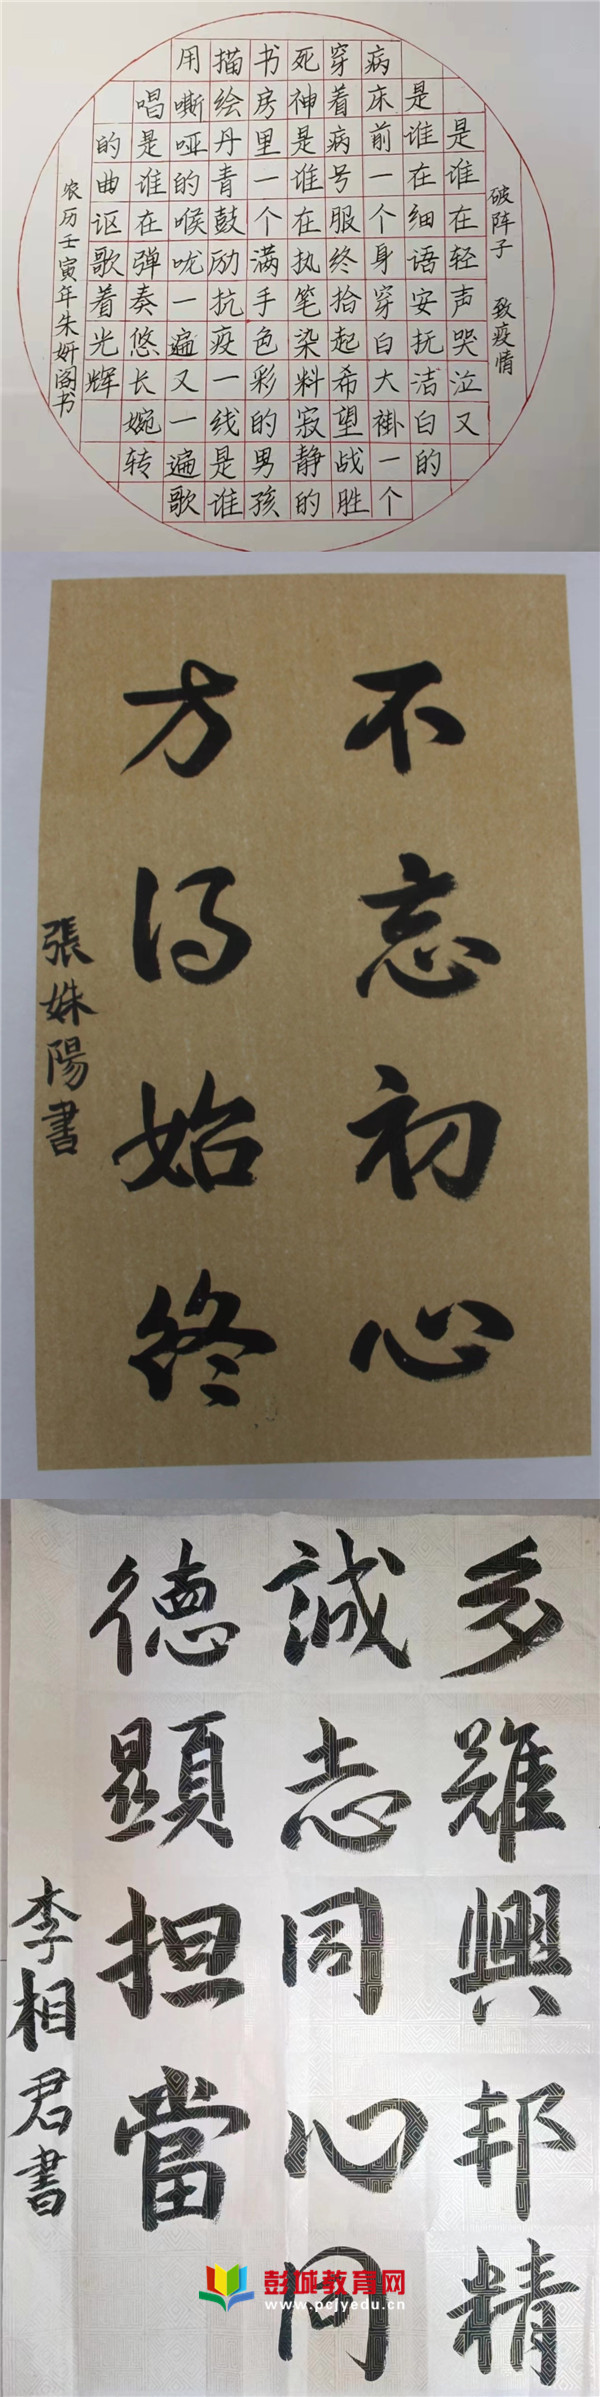 破阵子 致疫情
是谁在轻声哭泣又
是谁在细语安抚洁白的
病床前一个身穿白大褂一个
穿着病号服终拾起希望战胜
死神是谁在执笔染料寂静的
书房里一个满手色彩的男孩
描绘丹青鼓励抗疫一线是谁
用嘶哑的喉咙一遍又一遍歌
唱是谁在弹奏悠长婉转
的曲讴歌着光辉
农历壬寅年朱妍阁书
不忘初心
方得始终
張姝陽書
多難興邦精
誠志同心同
德顯担當
李相君書
彭城教育网
www.pcjyedu.cn